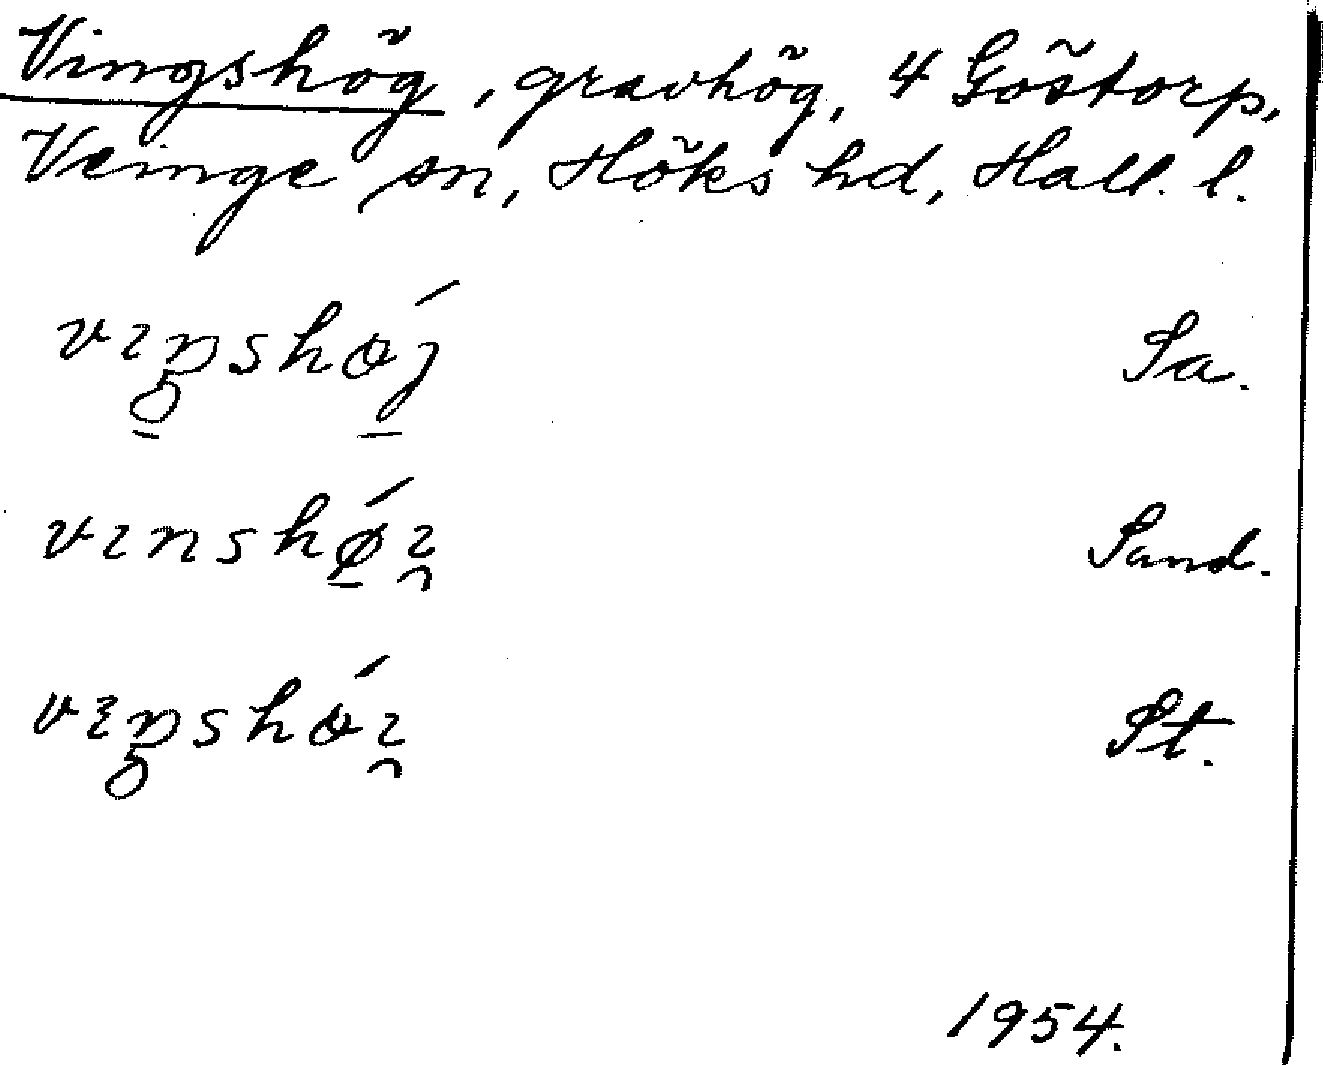 Vingshög, gravhög, 4 Göstorp,
Veinge sn, Höks hd, Hall. l.
vıŋshǿj Sa.
vınshǿı̯ Sand.
vıŋshǿı̯ St.
1954.